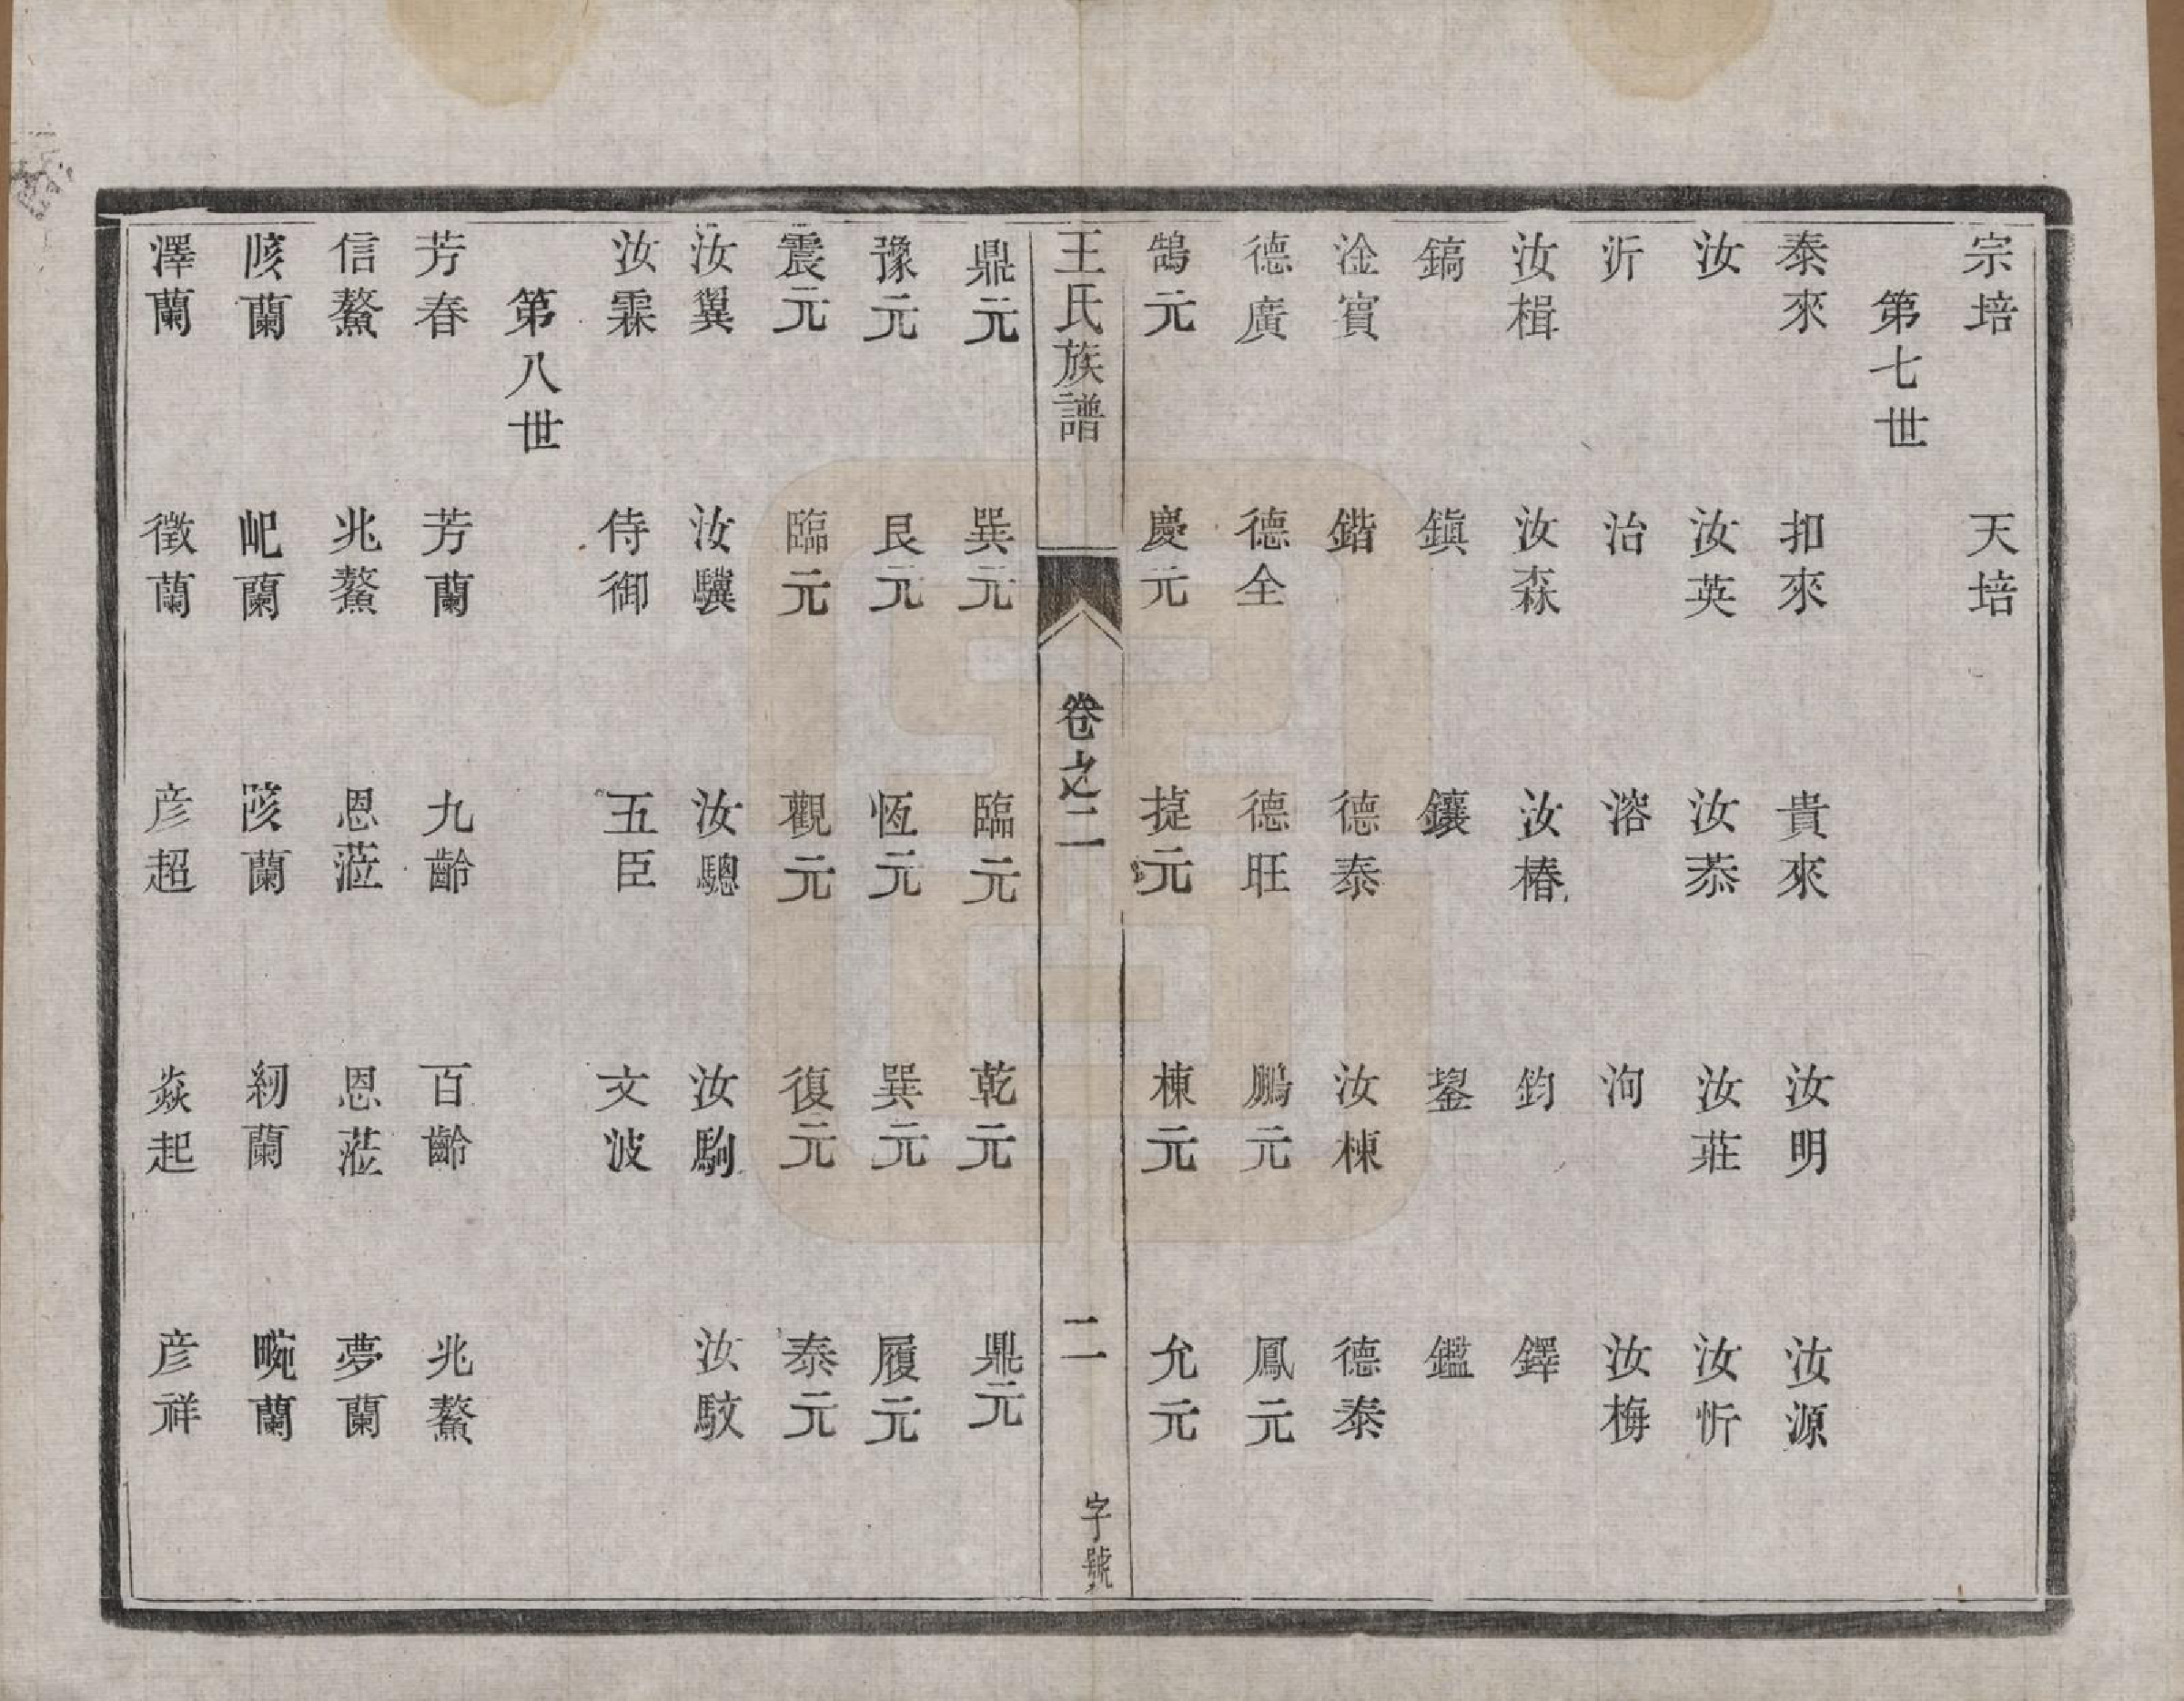 宗培 天培
第七世
泰來 扣來 貴來 汝明 汝源
汝 汝英 汝菾 汝莊 汝忻
沂 治 溶 洵 汝梅
汝楫 汝森 汝椿 鈞 鐸
鎬 鎭 鑲 鋆 鑑
淦寳 鍇 德泰 汝棟 德泰
德廣 德全 德旺 鵬元 鳳元
鵠元 慶元 㨗元 棟元 允元
王氏族譜 卷之二 二 字號
鼎元 巽元 臨元 乾元 鼎元
豫元 艮元 恆元 巽元 履元
震元 臨元 觀元 復元 泰元
汝翼 汝驥 汝驄 汝駒 汝馼
汝霖 侍御 五臣 文波
第八世
芳春 芳蘭 九齡 百齡 兆鰲
信鰲 兆鰲 恩蒞 恩蒞 夢蘭
蘭 屺蘭 陔蘭 紉蘭 畹蘭
澤蘭 徵蘭 彥超 焱起 彥祥